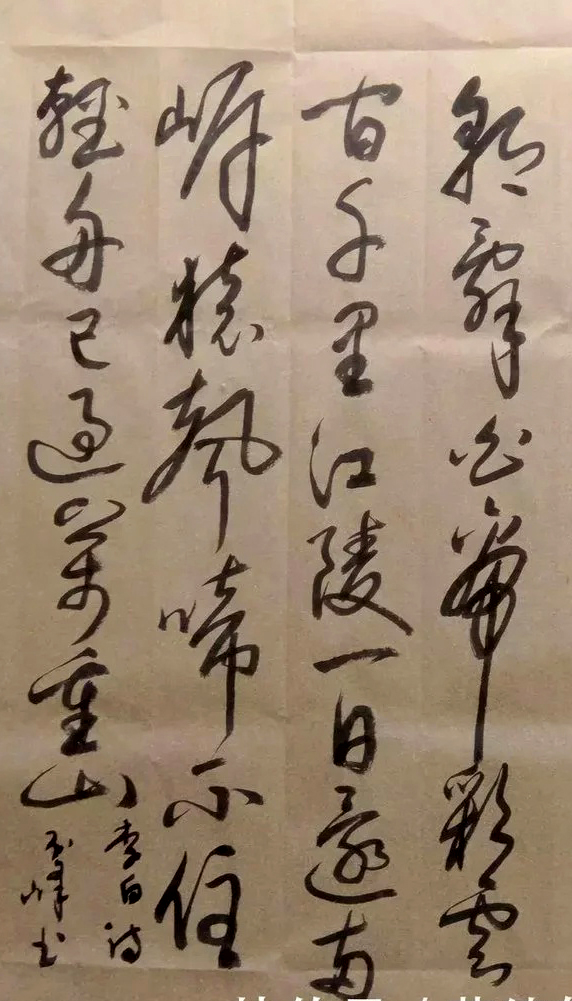 朝辭白帝彩雲
間千里江陵一日還兩
岸猿聲啼不住
輕舟已過萬重山
李白詩
玉峰书